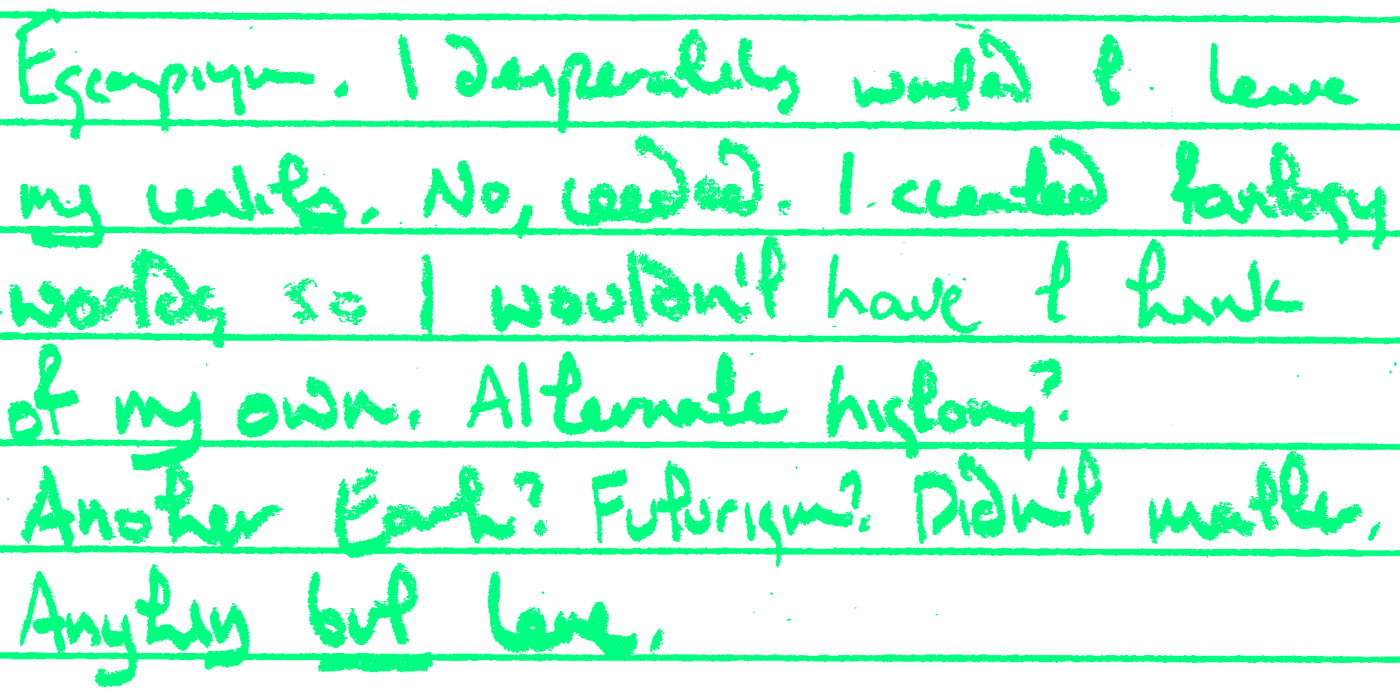 Escapism. I desperately wanted to leave
my reality. No, needed. I created fantasy
worlds so I wouldn't have to think
of my own. Alternate history?
Another Earth? Futurism? Didn't matter,
Anything but here.